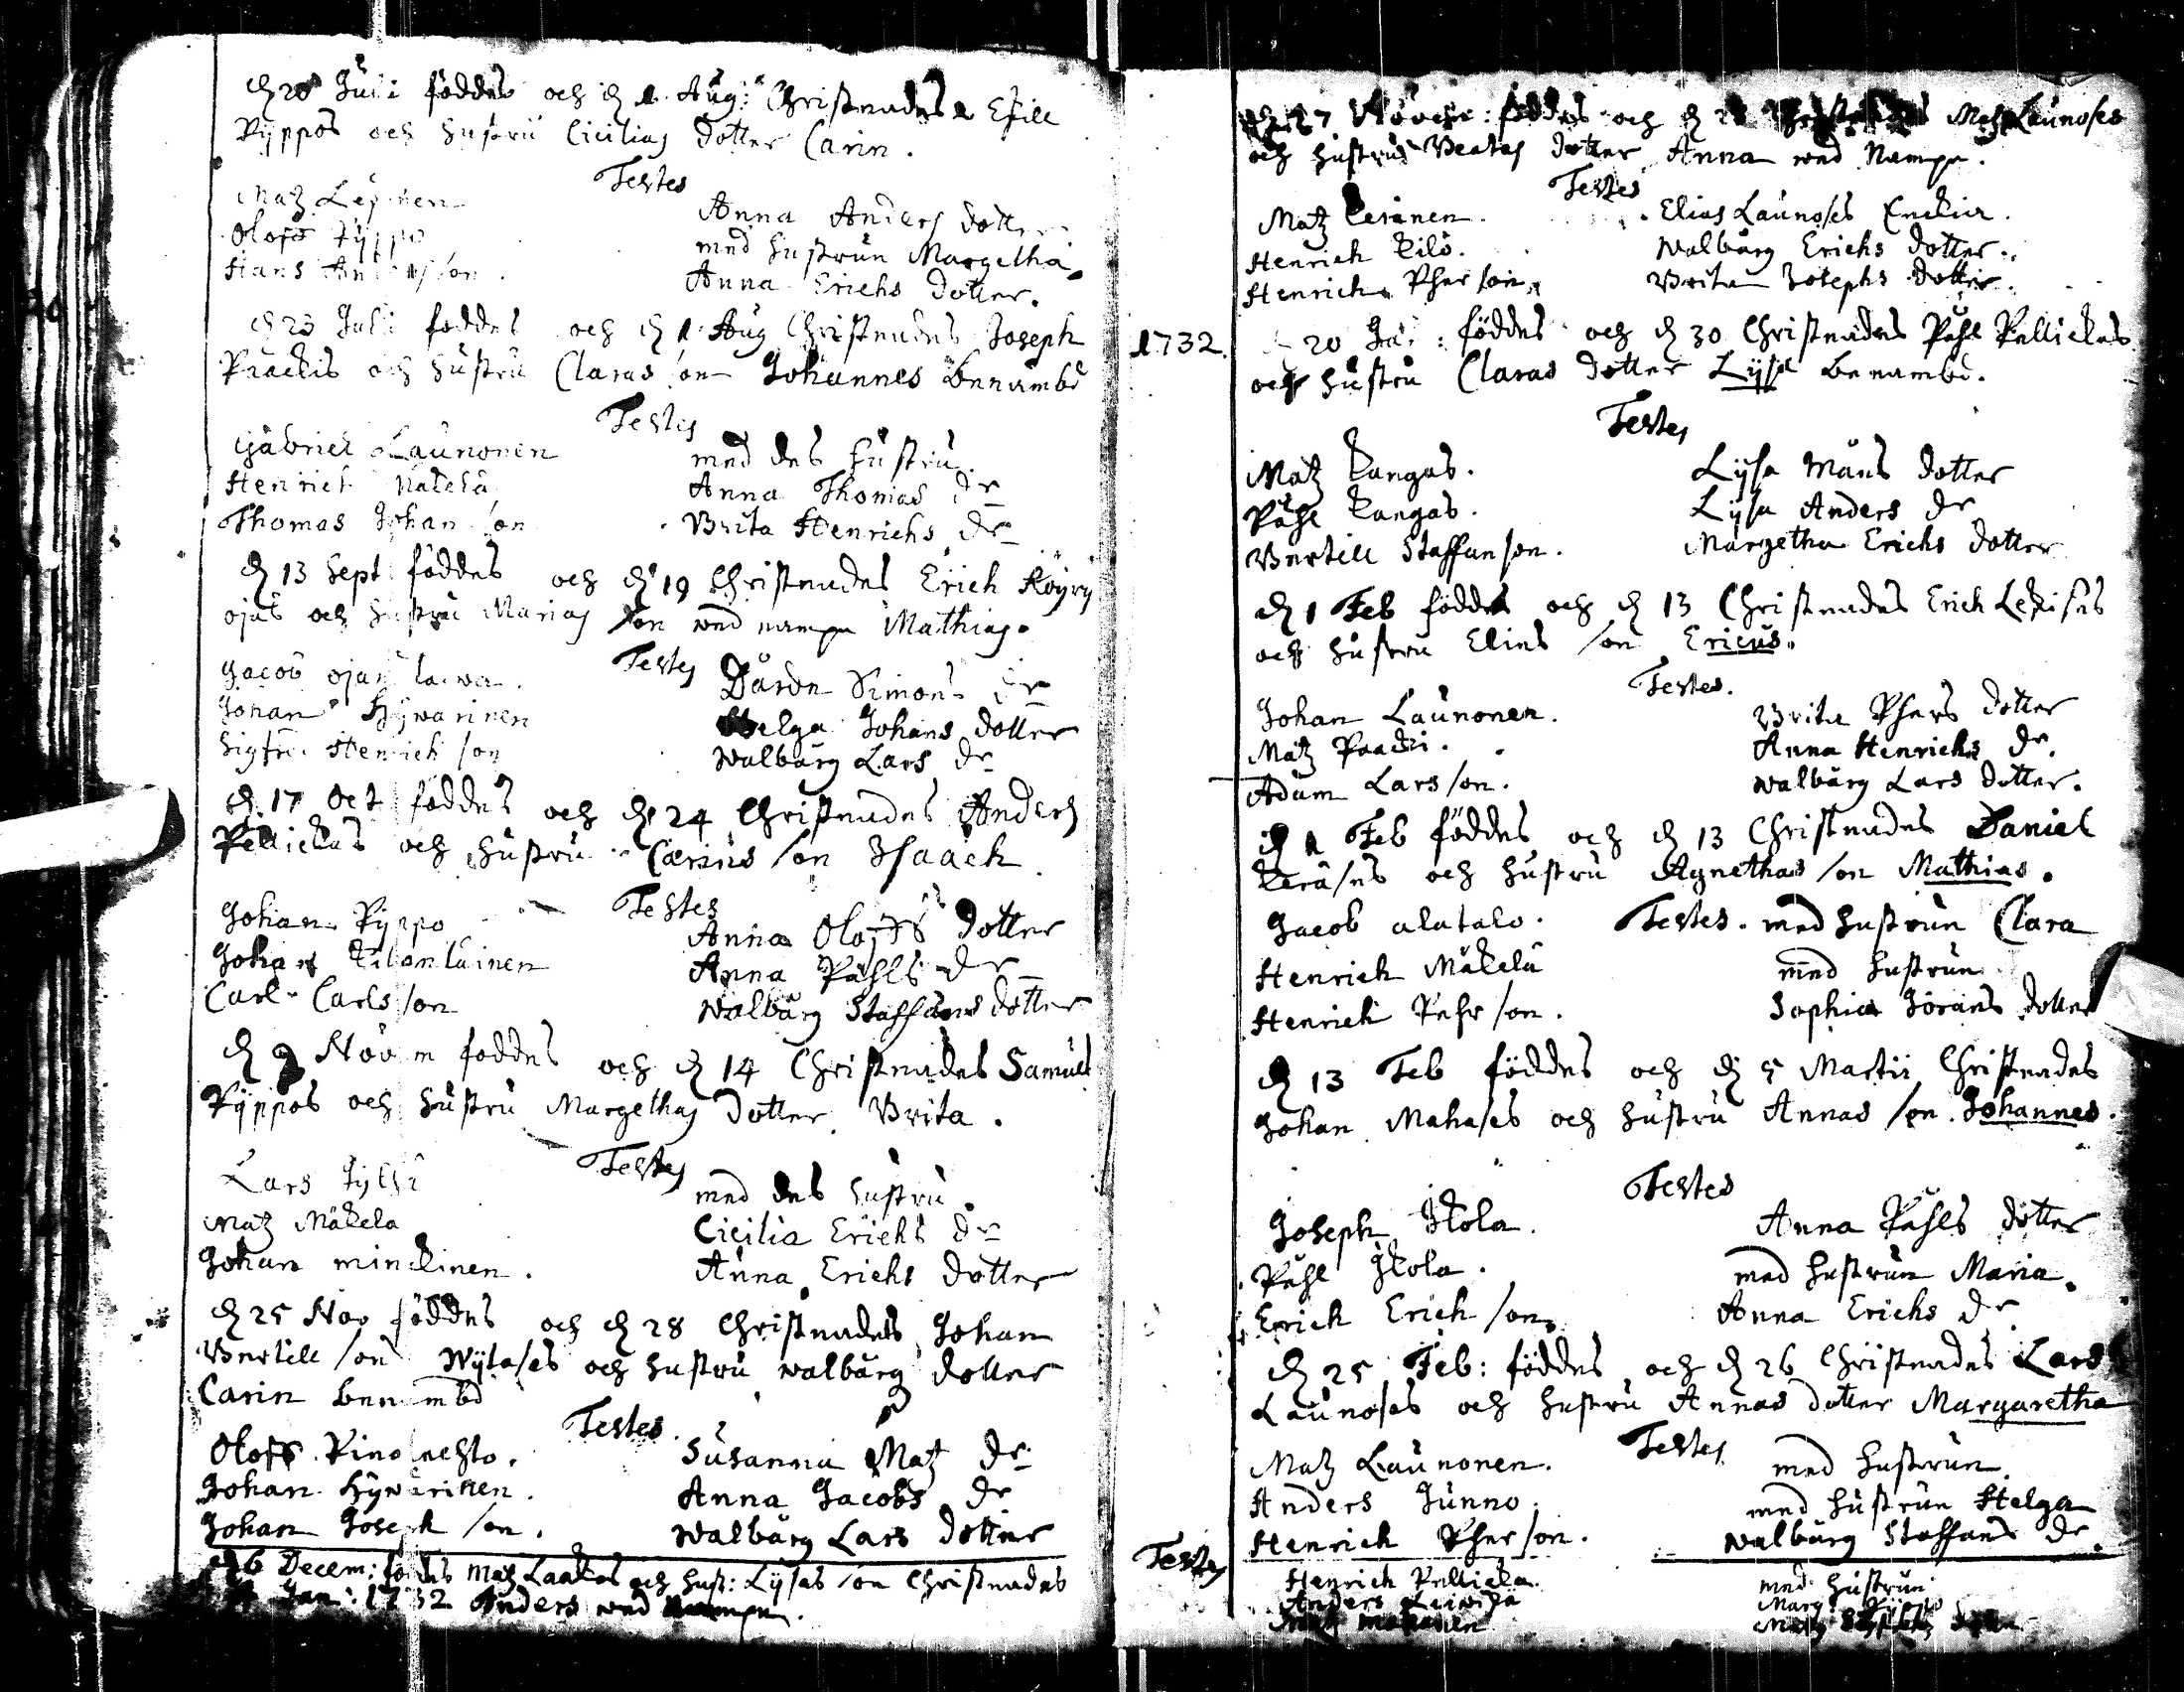 d 20 Juli föddes och d 1 Aug: Christnades Eskill
Pyppos och hustru Cicilias dotter Carin.
Testes
Matz Lepinen
Anna Anders dotter
Oloff Pyppo
med hustrun Margetha
Hans Anders son.
Anna Erichs dotter.
d 23 Juli föddes och d 1 Aug Christnades Joseph
Paackis och hustru Claras son Johannes benämbd
Testes
Gabriel Launonen
med des hustru.
Henrich Mäkelä
Anna Thomas dr
Thomas Johan son
Brita Henrichs dr
d 13 Sept föddes och d 19 Christnades Erich Köyry
ojas och hustru Marias son med nampn Mathias.
Testes
Jacob ojan
Simons dr
Johan Hywärinen
Helga Johans dotter
Sigfre Henrich son
walbürg Lars dr
d 17 Oct föddes och d 24 Christnades Anders
Pellickas och hustru Carins son Isaach
Testes
Johan Pyppo
Anna Oloffs dotter
Johan Kilamläinen
Anna Påhls dr
Carl Carls son
walbürg Staffans dotter
d 9 Novem föddes och d 14 Christnades Samuel
Pyppos och hustru Margethas dotter Brita.
Testes
Lars
med des hustru.
Matz Mäkelä
Cicilia Erichs dr
Johan minckinen.
Anna Erichs dotter
d 25 Nov föddes och d 28 Christnades Johan
Bertill son Wytases och hustru walbürg dotter
Carin benämbd
Testes.
Oloff Pinolehto.
Susanna Matz dr
Johan Hywärinen.
Anna Jacobs dr
Johan Joseph son.
walbürg Lars dotter
d 6 Decem: föddes Matz Laakos och hust: Lysas son Christnades
Jan: 1732 Anders med nampn.
d 27 Novem: föddes och d 28 Christnades Matz Launoses
och hustrus Beatas dotter Anna med Nampn.
Testes
Matz Keränen.
Elias Launoses Enckia.
Henrich Kilö.
walbürg Erichs dotter.
Henrich Pher son
Brita Josephs dotter.
1732.
20 Jan: föddes och d 30 Christnades Påhl Pellickas
och hustru Claras dotter Lysa benämbd.
Testes
Matz Kangas.
Lysa Måns dotter
Påhl Kangas.
Lysa Anders dr
Bertill Staffan son.
Margetha Erichs dotter
d 1 Feb föddes och d 13 Christnades Erich Lekises
och hustru Elins son Ericus.
Testes.
Johan Launonen.
Brita Phers dotter
Matz Paacki.
Anna Henrichs dr.
Adam Lars son.
walbürg Lars dotter.
d 1 Feb föddes och d 13 Christnades Daniel
Keräses och hustru Agnethas son Mathias.
Jacob alatalo. Testes. med hustrun Clara
Henrich Mäkelä
med hustrun
Henrich Pehr son.
Sophia Jörans dotter
d 13 Feb föddes och d 5 Martii Christnades
Johan Mahases och hustru Annas son Johannes.
Testes
Joseph Ikola.
Anna Påhls dotter
Påhl Ikola.
med hustrun Maria.
Erich Erich son
Anna Erichs dr
d 25 Feb: föddes och d 26 Christnades Lars
Launoses och hustru Annas dotter Margaretha
Testes
Matz Launonen.
med hustrun.
Anders Junno.
med hustrun Helga
Henrich Pher son.
walbürg Staffans dr.
Testes
Henrich Pellicka.
med hustrun
Anders